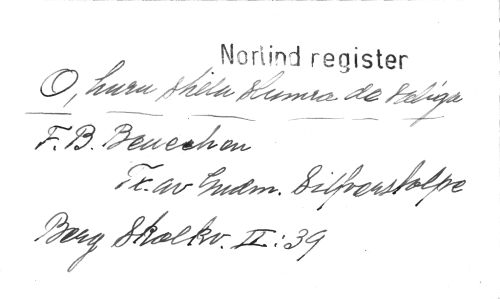 Norlind register
O, huru stilla slumra de saliga
F. B. Beneehen
Tx. av Gudm. Silfverstolpe
Berg Skolkv. II:39